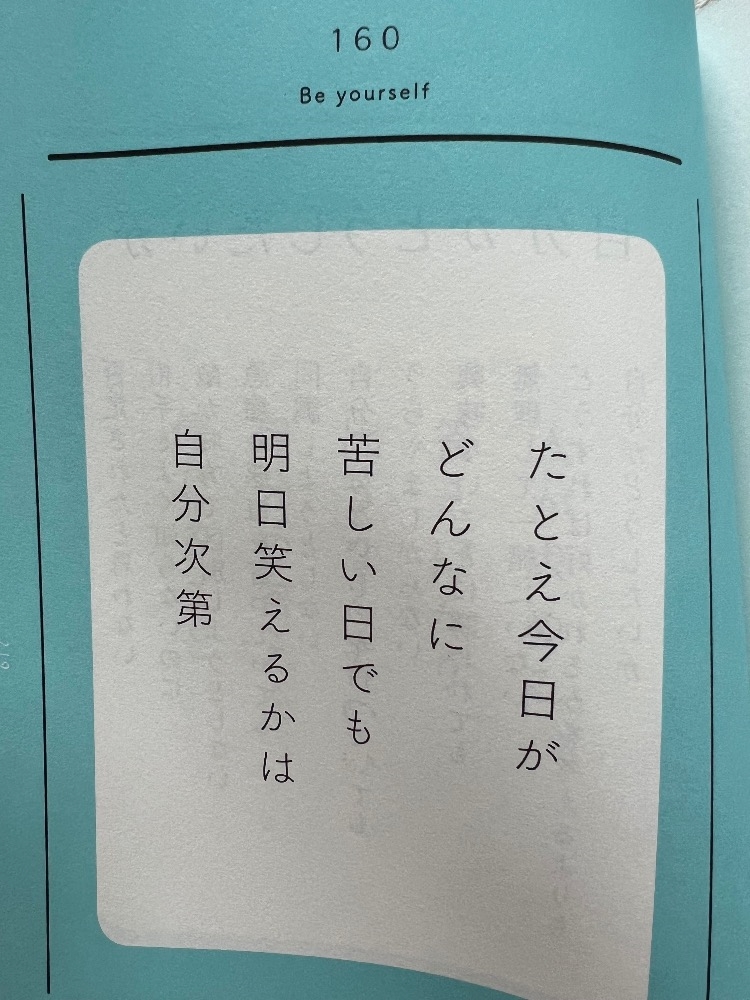 160
Be yourself
たとえ今日が
どんなに
苦しい日でも
明日笑えるかは
自分次第